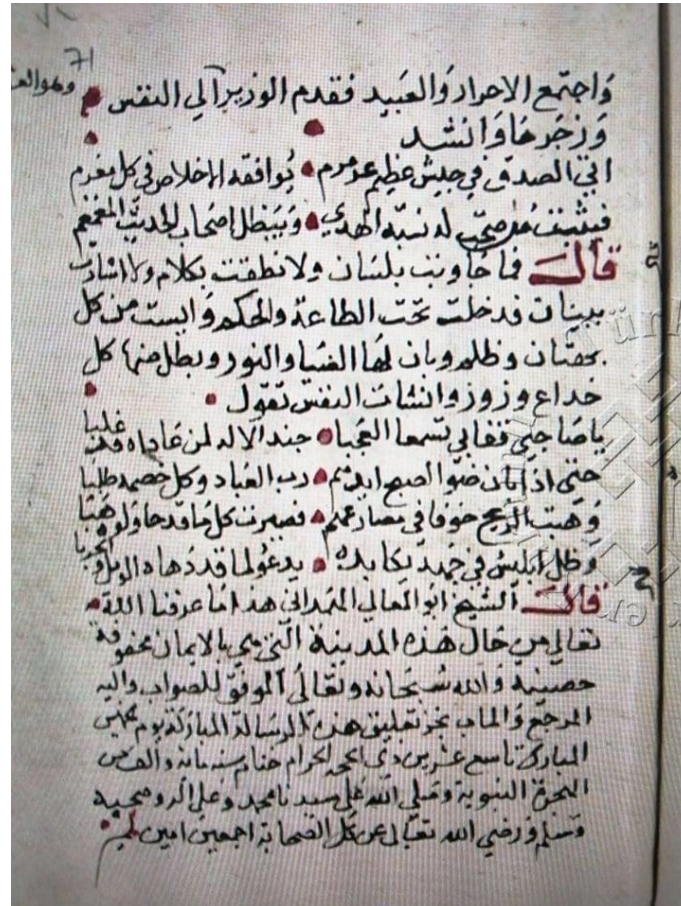 71
وهو الع
وَاجتمع الاحرار وَالعَبيد فقدم الوزير الي النفس
وَزجَرهَا وَانشد
اتي الصدق في جيش عظيم عرمرم يُوافقه الاخلاص في كل مغرم
فيثبت من صحت له نسبة الهدي وَيَبطل اصحَاب الحديث
قالـــ فما جَاوبت بلسَان ولا نطقت بكلام ولا اشارت
ببينان فدخلت تحت الطاعة والحكم وايست من كل
بهتان وظلم وبان لهَا الضيا والنور وبطل منها كل
خداع وزوز وانشات النفس تقول
يا صَاحبَي قفا بي تسمعا العَجبا جند الاله لمن عَاداه قد غلبا
حتي اذا بان ضوا الصبح ايدهم رب العبَاد وكل خصمه طلبَا
وَهبت الريح خوفا في فصيرت كل مَا قد حَاولوه هَبَا
وَظل ابليس في جهد يكابده يدعُو لما قد دهَاه الويل وَالحربا
قالـــ الشيخ ابو المعالي هذا مَا عرفنا اللهَ
تعالي من حَال هَذه المدينة التي هي بالايمان محفوفة
حصينة وَالله سُبحَانه وتعَالي الموفق للصواب واليه
المرجع وَالماب نجز تعليق هذه الرسَالة المبَاركة يوم
المبارك تاسع عشرين ذي الحجه الحرام ختام سنه مائه والف من
الهجرة النبوية وصَلي الله عَلي سيدنا محمد وعلي اله وصحبه
وَسَلم ورضي الله تعَالي عن كل الصحَابة اجمعين امين